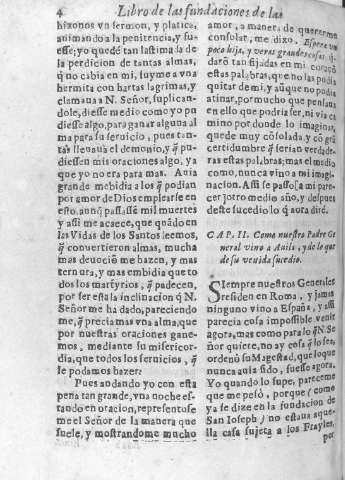 4 Libro de las fundaciones de las
hizonos vn sermon, y platica,
animando a la penitencia, y fu-
esse; yo quedè tan lastimada de
la perdicion de tantas almas,
q̃ no cabia en mi, fuyme a vna
hermita con hartas lagrimas, y
clamaua a N. Señor, suplican-
dole, diesse medio como yo pu
diesse algo, para ganar alguna al
ma para su seruicio, pues tan-
tas lleuaua el demonio, y q̃ pu-
diessen mis oraciones algo, ya
que yo no era para mas. Auia
grande mbidia a los q̃ podian
por amor de Dios emplearse en
esto, aunq̃ passasse mil muertes
y assi me acaece, que quãdo en
las Vidas de los Santos leemos,
q̃ conuertieron almas, mucha
mas deuociõ me hazen, y mas
ternura, y mas embidia que to
dos los martyrios, q̃ padecen,
por ser esta la inclinaciõ q̃ N.
Señor me ha dado, pareciendo
me, q̃ precia mas vna alma, que
por nuestras oraciones gane-
mos, mediante su misericor-
dia, que todos los seruicios, q̃
le podamos hazer.
Pues andando yo con esta
pena tan grande, vna noche es-
tando en oracion, representose
me el Señor de la manera que
suele, y mostrandome mucho
amor, a manera de quererme
consolar, me dixo. Espera vn
poco hija, y veras grandes cosas:
darõ tan fijadas en mi coraçõ
estas palabras, que no las podia
quitar de mi, y aũque no podia
atinar, por mucho que pensaua
en ello que podria ser, ni via ca
mino por donde lo imaginar,
quede muy cõsolada, y cõ grã
certidumbre q̃ serian verdade-
ras estas palabras; mas el medio
como, nunca vino a mi imagi-
nacion. Assi se passò, a mi pare-
cer, otro medio año, y despues
deste sucedio lo q̃ aora dirè.
CAP. II. Como nuestro Padre Ge
neral vino a Auila, y de lo que
de su venida sucedio.
Siempre nuestros Generales
residen en Roma, y jamas
ninguno vino a España, y assi
parecia cosa impossible venir
agora, mas como para lo q̃ N. Se
ñor quiere, no ay cosa q̃ lo sea,
ordenò su Magestad, que lo que
nunca auia sido, fuesse agora.
Yo quando lo supe, pareceme
que me pesò, porque (como
ya se dize en la fundacion de
San Ioseph) no estaua aque-
lla casa sujeta a los Frayles,
por